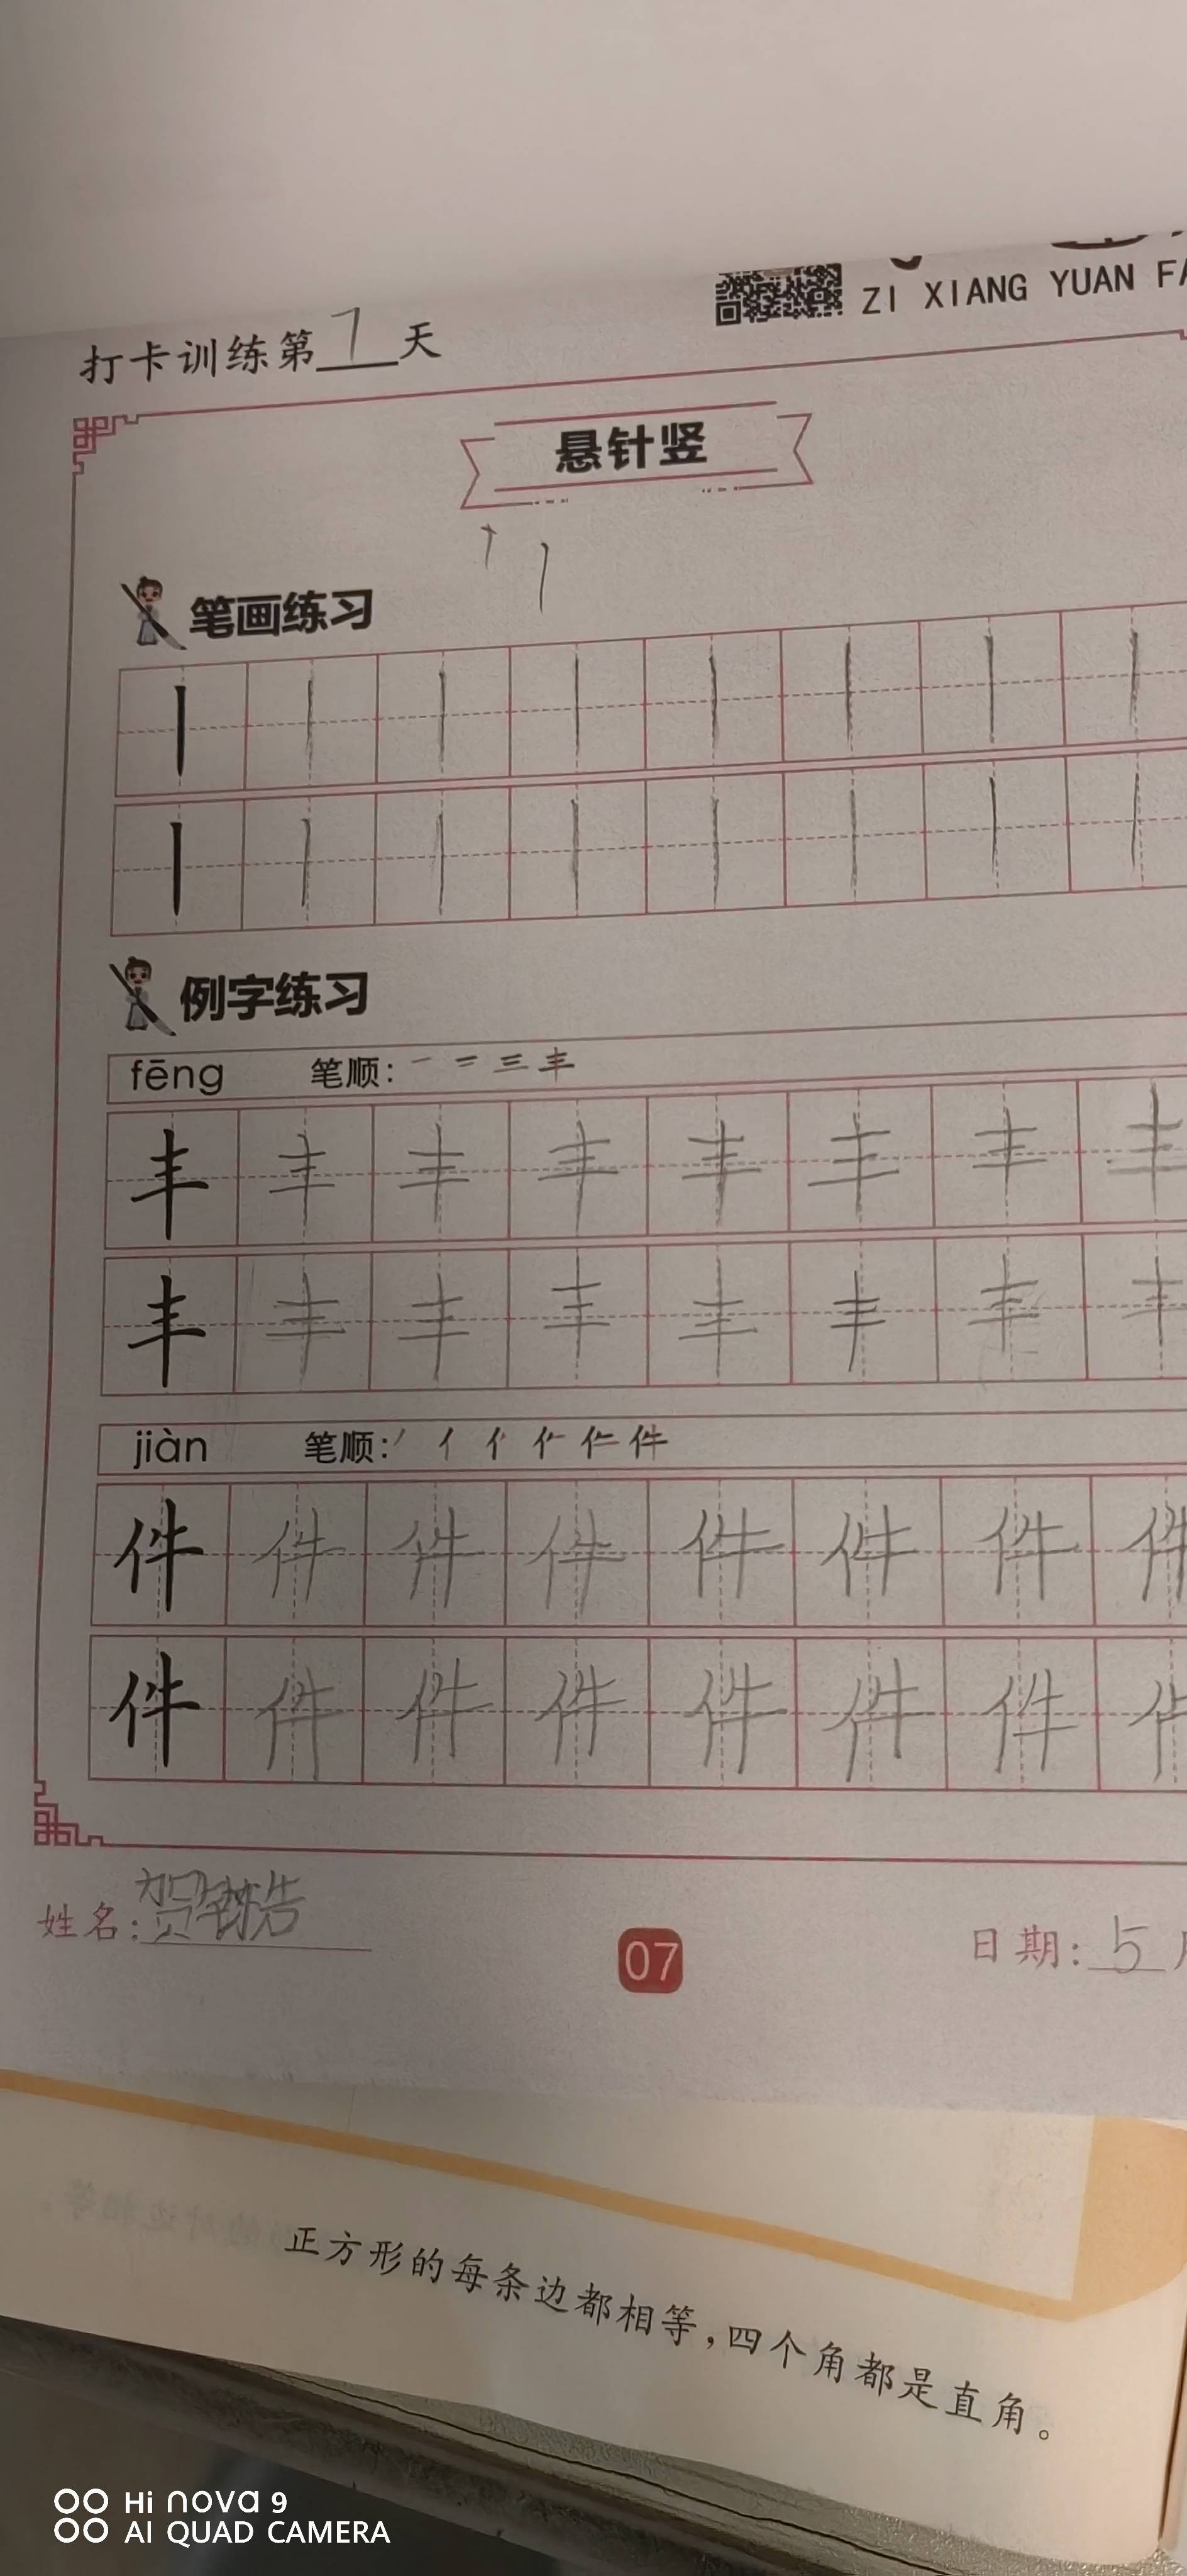 ZI XIANG YUAN FA
打卡训练第7天
悬针竖
笔画练习
例字练习
fēng 笔顺:
丰 丰 丰 丰 丰 丰 丰 丰
丰 丰 丰 丰 丰 丰 丰 丰
jiàn 笔顺:
件 件 件 件 件 件 件 件
件 件 件 件 件 件 件 件
姓名:贺
07
日期:5月
正方形的每条边都相等,四个角都是直角。
Hi nova 9
AI QUAD CAMERA